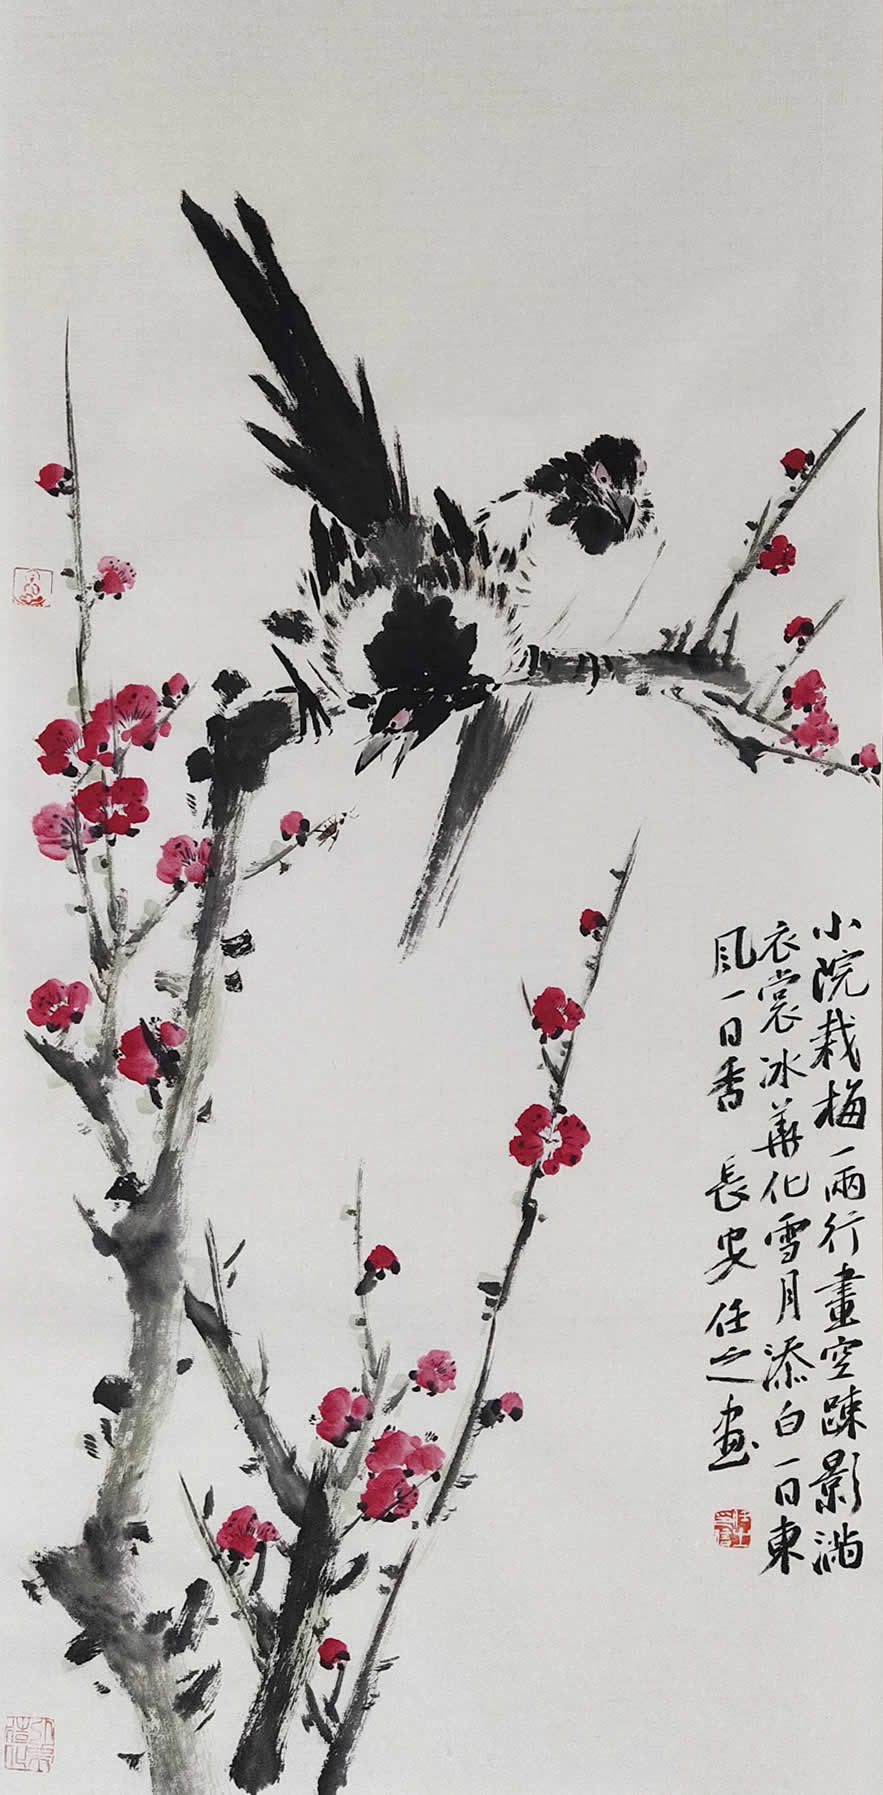 小院栽梅一兩行畫空踈影滿
衣裳冰華化雪月添白一日東
風一日香 長安任之画